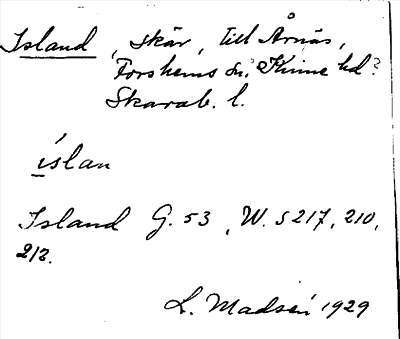 Island, skär, till Årnäs,
Forshems sn. Kinne hd?
Skarab. l.
íslan
Island G. 53, W. S 217, 210,
212.
L. Madsén 1929